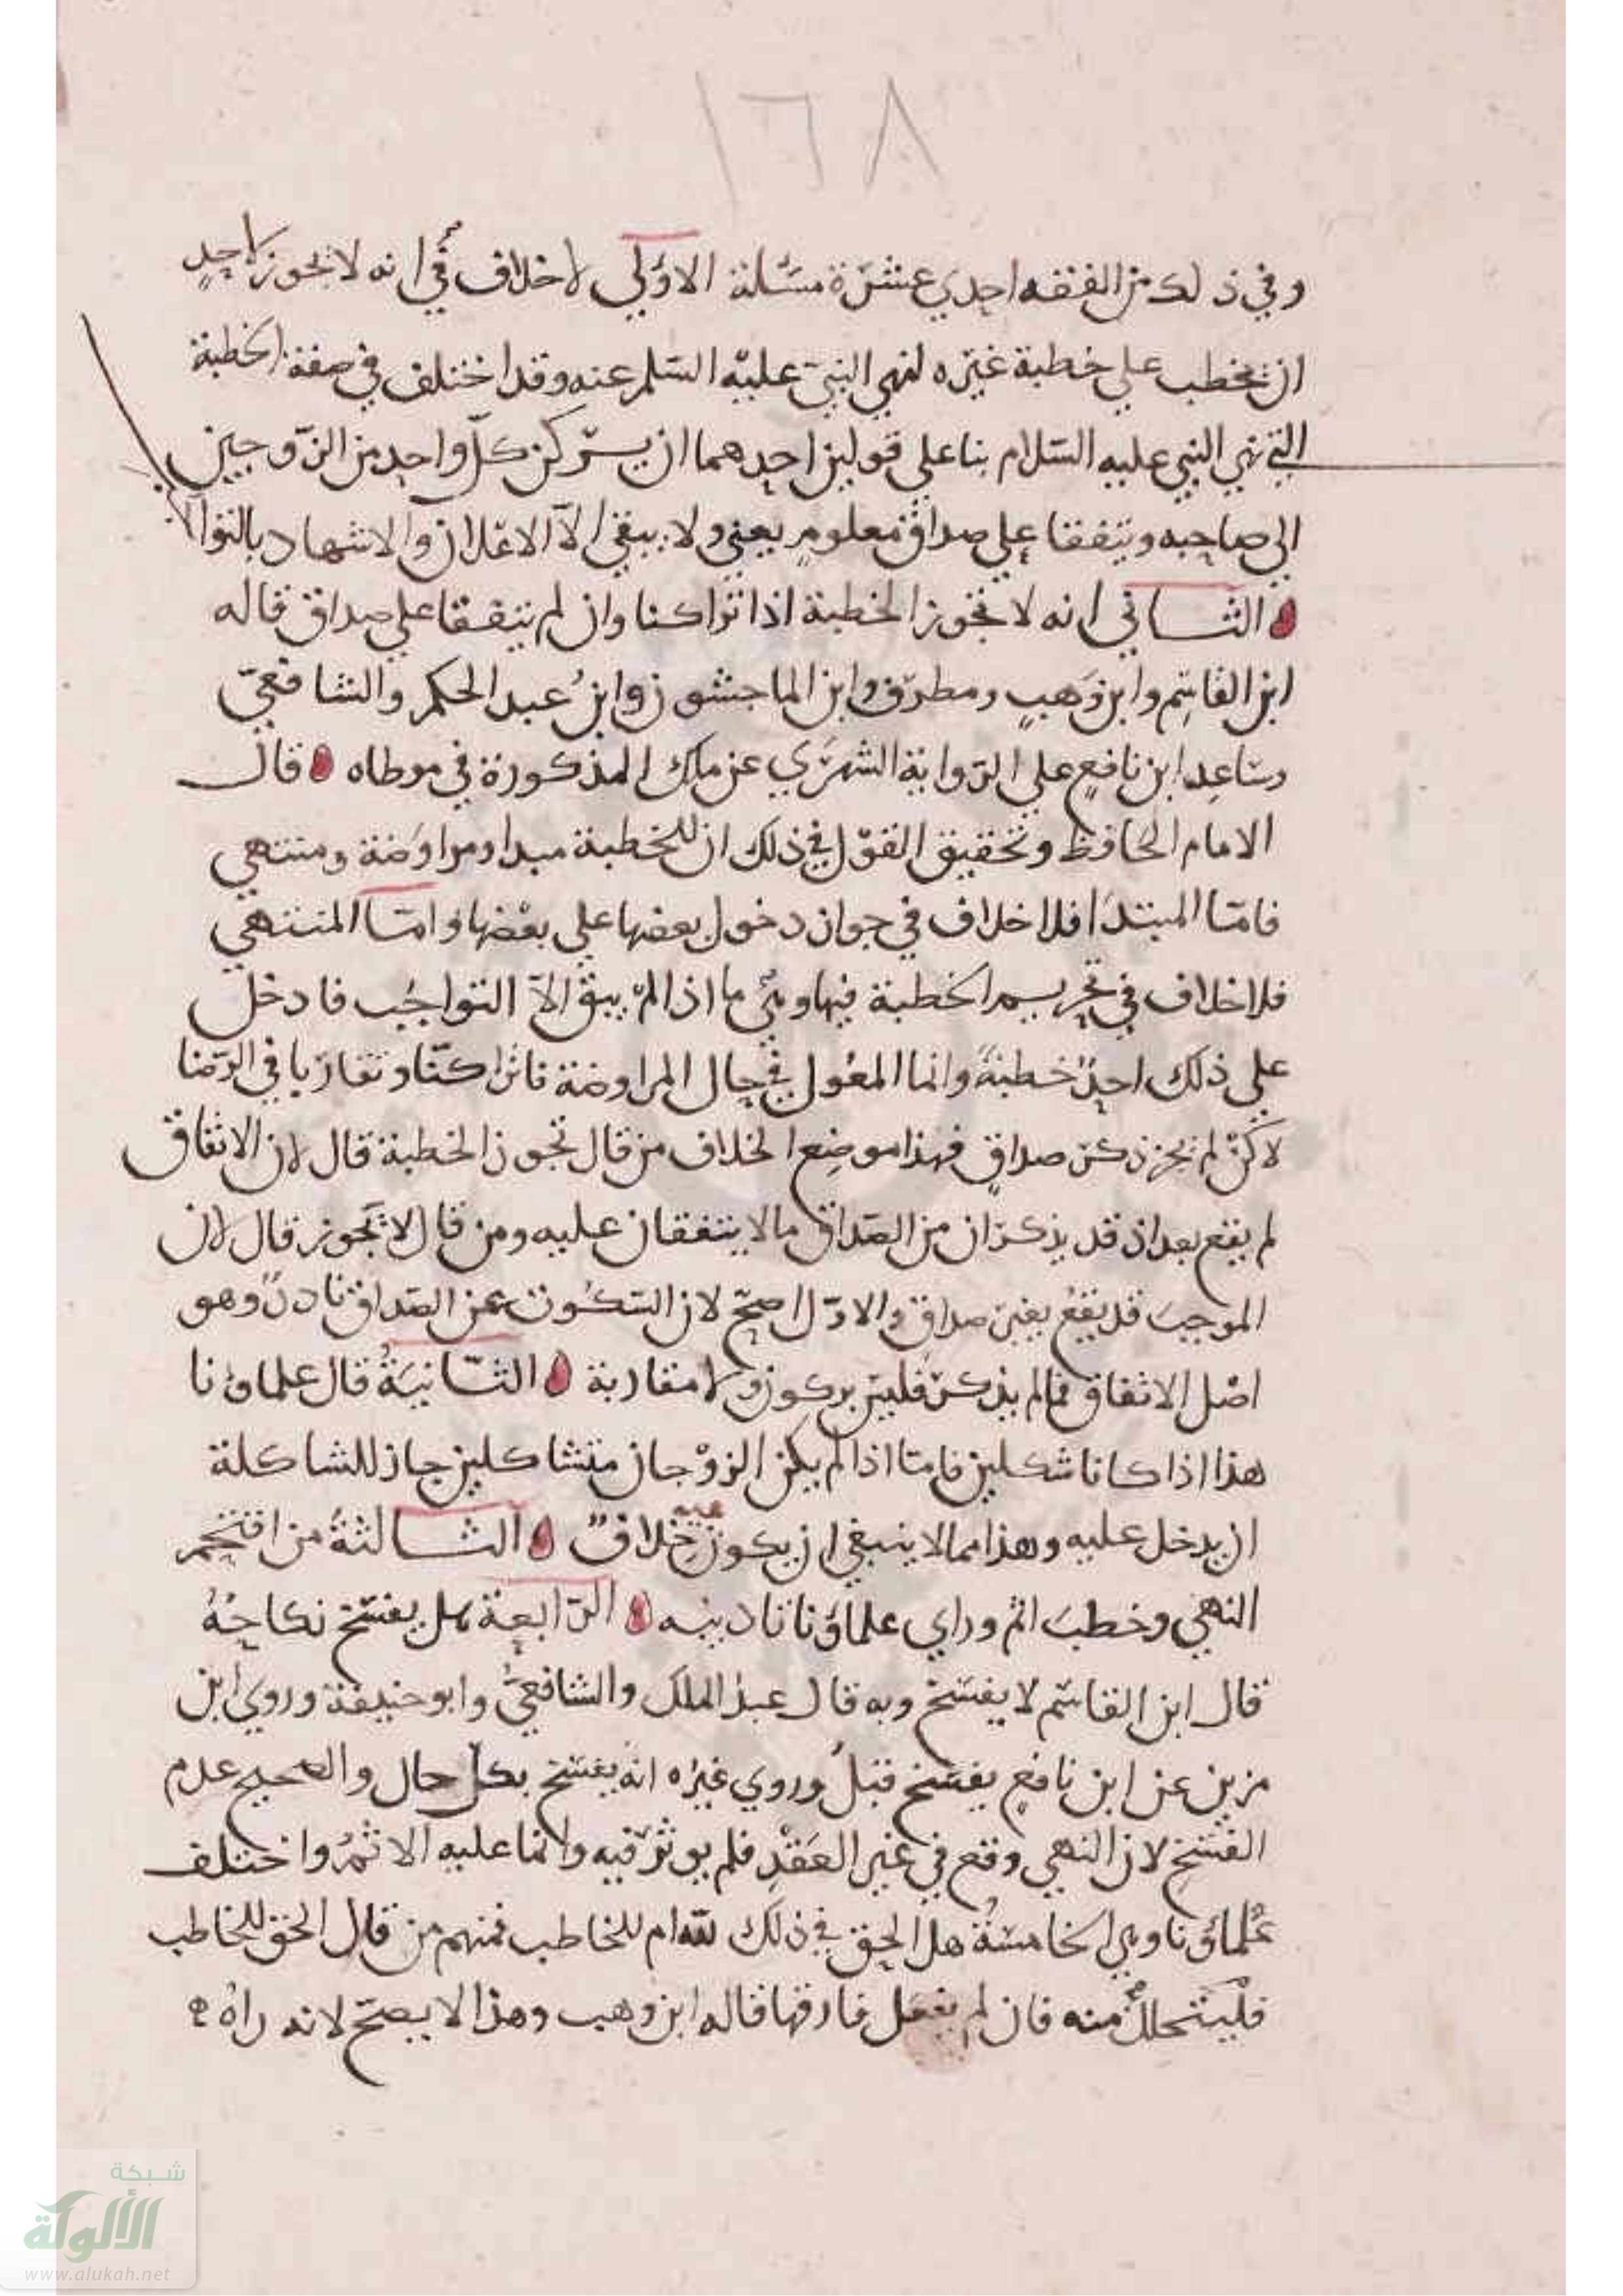 ١٦٨
وفي ذلك من الفقه احدي عشرة مسئلة الاولي لا خلاف في انه لا يجوز لاحدٍ
ان يخطب علي خطبة غيره لنهي النبي عليه السلم عنه وقد اختلف في صفة الخطبة
التي نهي النبي عليه السلام بنا علي قولين احدهما ان يركن كل واحد من الزوجين
الي صاحبه ويتفقا علي صداق معلومٍ يعني ولا يبقي الا الاعلان والاشهاد بالنوال
الثاني انه لا تجوز الخطبة اذا تراكنا وان لم يتفقا علي صداق قاله
ابن القاسِم وابن وَهبٍ ومطرّف وابن الماجشون وابنُ عبد الحكم والشافعيّ
وساعد ابن نافعٍ علي الرواية الشهري عن ملك المذكورة في موطاه قال
الامام الحافظ وتحقيق القوْل في ذلك ان للخطبة مبدا ومراوَضة ومنتهي
فامّا المبتدَا فلا خلاف في جواز دخول بعضها علي بعْضها وامّا المنتهي
فلا خلاف في تحريم الخطبة فيها وهي ما اذا لم يبق الاّ التواجُب فادخل
علي ذلك احدٌ خطبةً وانما المعُول في حال المراوضة فاتراكنّا وتقارَبا في الرّضا
لاكنْ لم يجز ذكر صداقٍ فهذا موضِع الخلاف من قال تجوز الخطبة قال لان الاتفاق
لم يقع بعد اذ قد يذكران من الصّداق ما لا يتفقان عليه ومن قال لا تجوز قال لان
الموجبَ قد يقعُ بغير صداقٍ والاوّل اصحّ لان السّكُوت عن الصّداق نادرٌ وهو
اصْل الاتفاق فما لم يذكرْ فليس بركون ولا مقاربة الثّانيَةُ قال علماؤنا
هذا اذا كانا شكلين فامّا اذا لم يكن الزوْجان متشاكلين جاز للشاكلة
ان يدخل عليه وهذا مما لا ينبغي ان يكون فيه خلافٌ الثالثةُ من اقتحم
النهي وخطبَ اثم وراي علماؤنا تاديبه الرّابعة هل يفسَخ نكاحُهُ
قال ابن القاسِم لا يفسَخ وبه قال عبد الملك والشافعيُّ وابو حنيفة وروي ابن
مزين عن ابن نافعٍ يفسَخ قبلُ وروي غيرُه انه يفسَخ بكل حال والصحيح عدم
الفسْخِ لان النهي وقع في غير العَقْدِ فلم يوثر فيه وانما عليه الاثمُ واختلف
عُلماؤنا وهي الخامسَةُ هل الحق في ذلك لله ام للخاطب فمنهم من قال الحق للخاطب
فلْيتحللْ منه فان لم يفعل فارقها قاله ابن وهب وهذا لا يصحّ لانه راهُ
شبكة
الألوكة
www.alukah.net